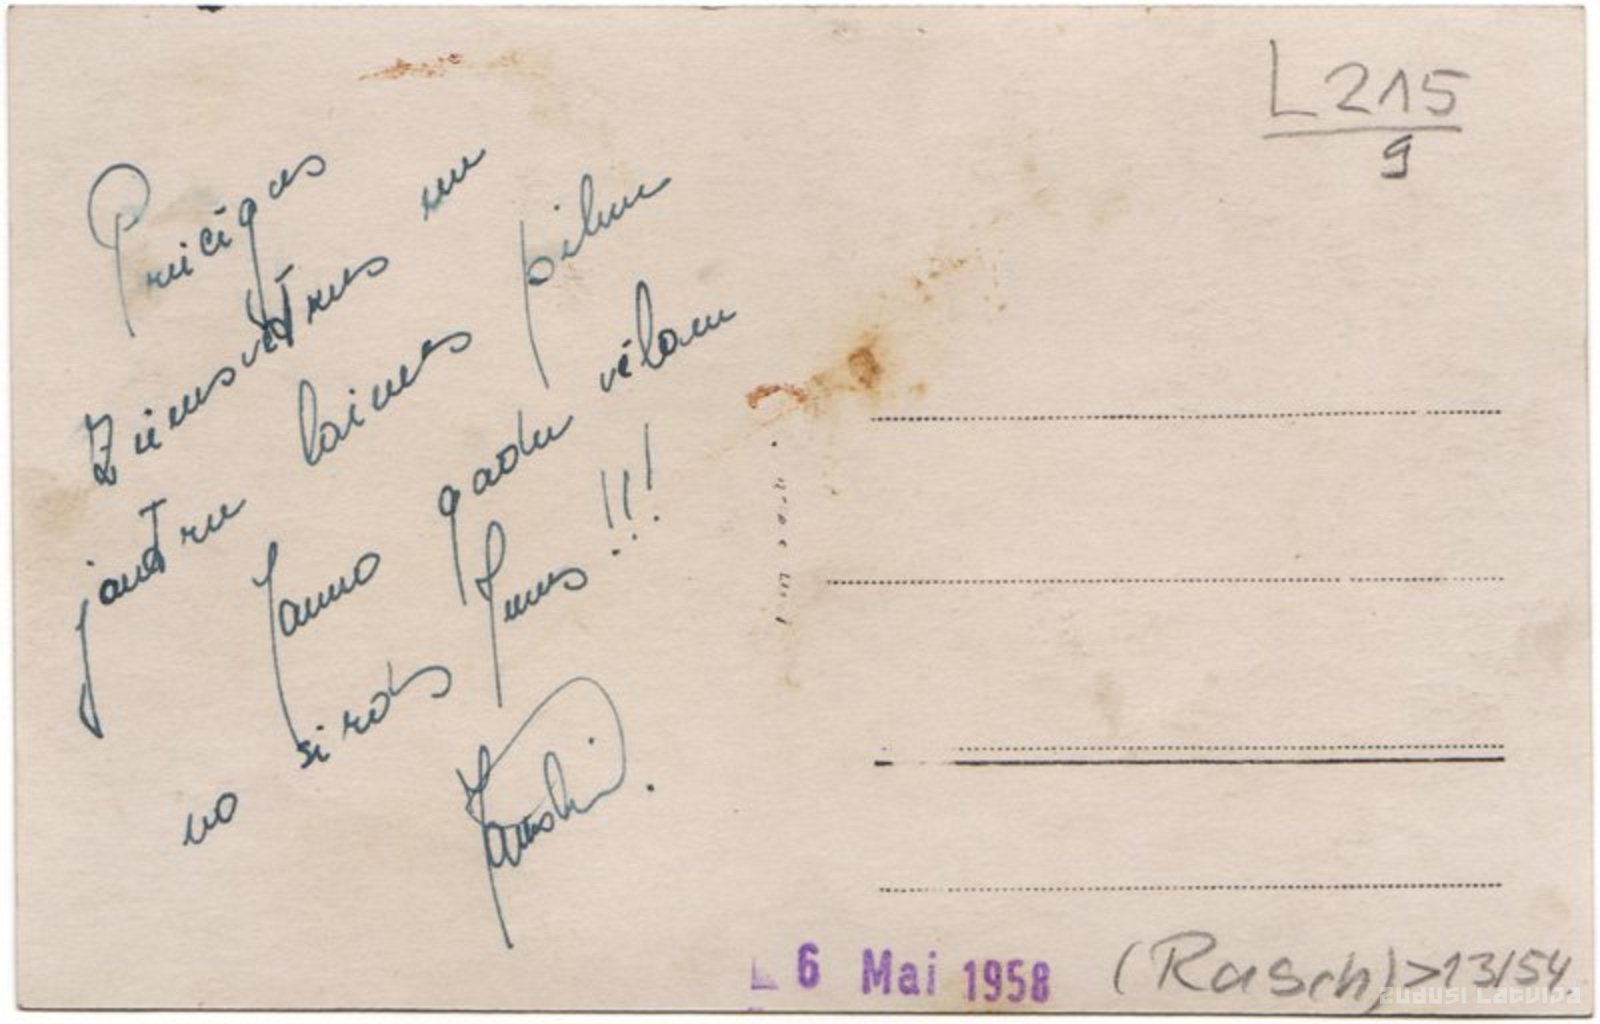 Priecīgus
Ziemsvētkus un
jautru laimes pilnu
Jauno gadu vēlam
no sirds Jums!!!
L 215
9
6 Mai 1958
(Rasch) > 13/54.
zudusi Latvija